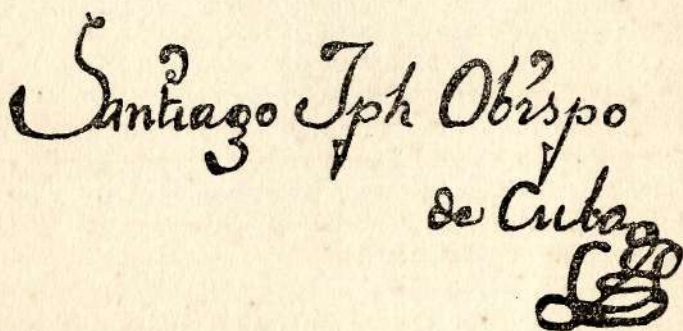 Santiago Jph Obispo
de Cuba